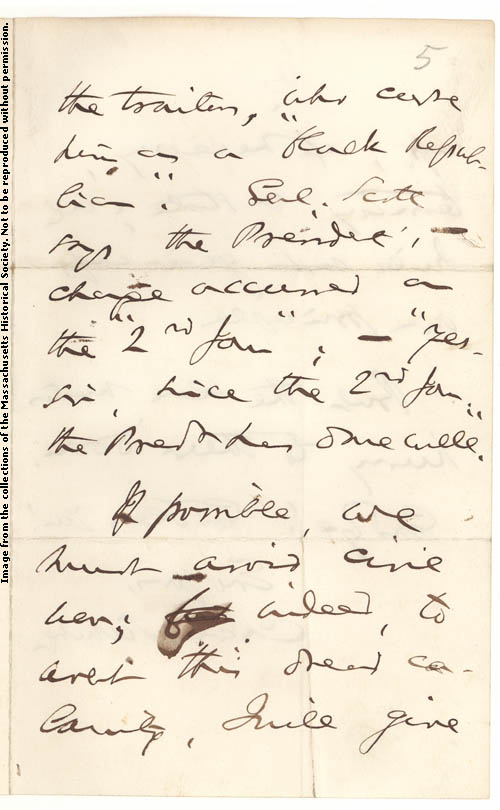 5
the traitors, who curse
him as a "black Repub-
lican". Genl. Scott
says the President's
change occurred on
the "2nd Jan"; — "yes-
sir, since the 2nd Jan.
the Presdt has done well."
If possible, we
must avoid civil
war; indeed, to
avert this dread ca-
lamity, I will give
Image from the collections of the Massachusetts Historical Society. Not to be reproduced without permission.